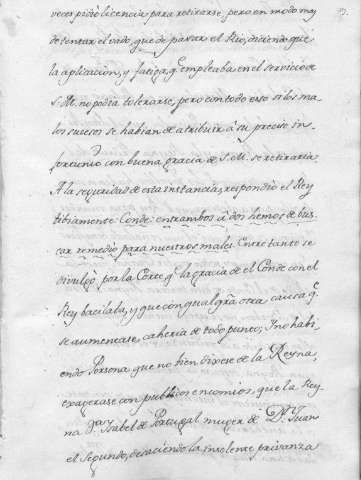 veces pidió licencia para retirarse, pero en modo mas
de tentar el vado, que de pasar el Rio, diciendo que
la aplicacion, y fatiga q.e empleaba en el servicio de
S. M. no podia tolerarse, pero con todo esto si los ma-
los sucesos se habian de atribuir â su preciso in-
fortunio con buena gracia de S. M. se retiraria:
A la seguridad de esta instancia, respondió el Rey
tibiamente: Conde: entrambos à dos hemos de bus-
car remedio para nuestros males. Entre tanto se
divulgó por la Corte q.e la gracia de el Conde con el
Rey bacilaba, y que con qualq.ra otra causa q.e
se aumentase caheria de todo punto; I no habi-
endo Persona que no bien dixese de la Reyna,
exagerase con publicos encomios, que la Rey-
na D.a Isabel de Portugal muger de D.n Juan
el Segundo, deshaciendo la insolente privanza